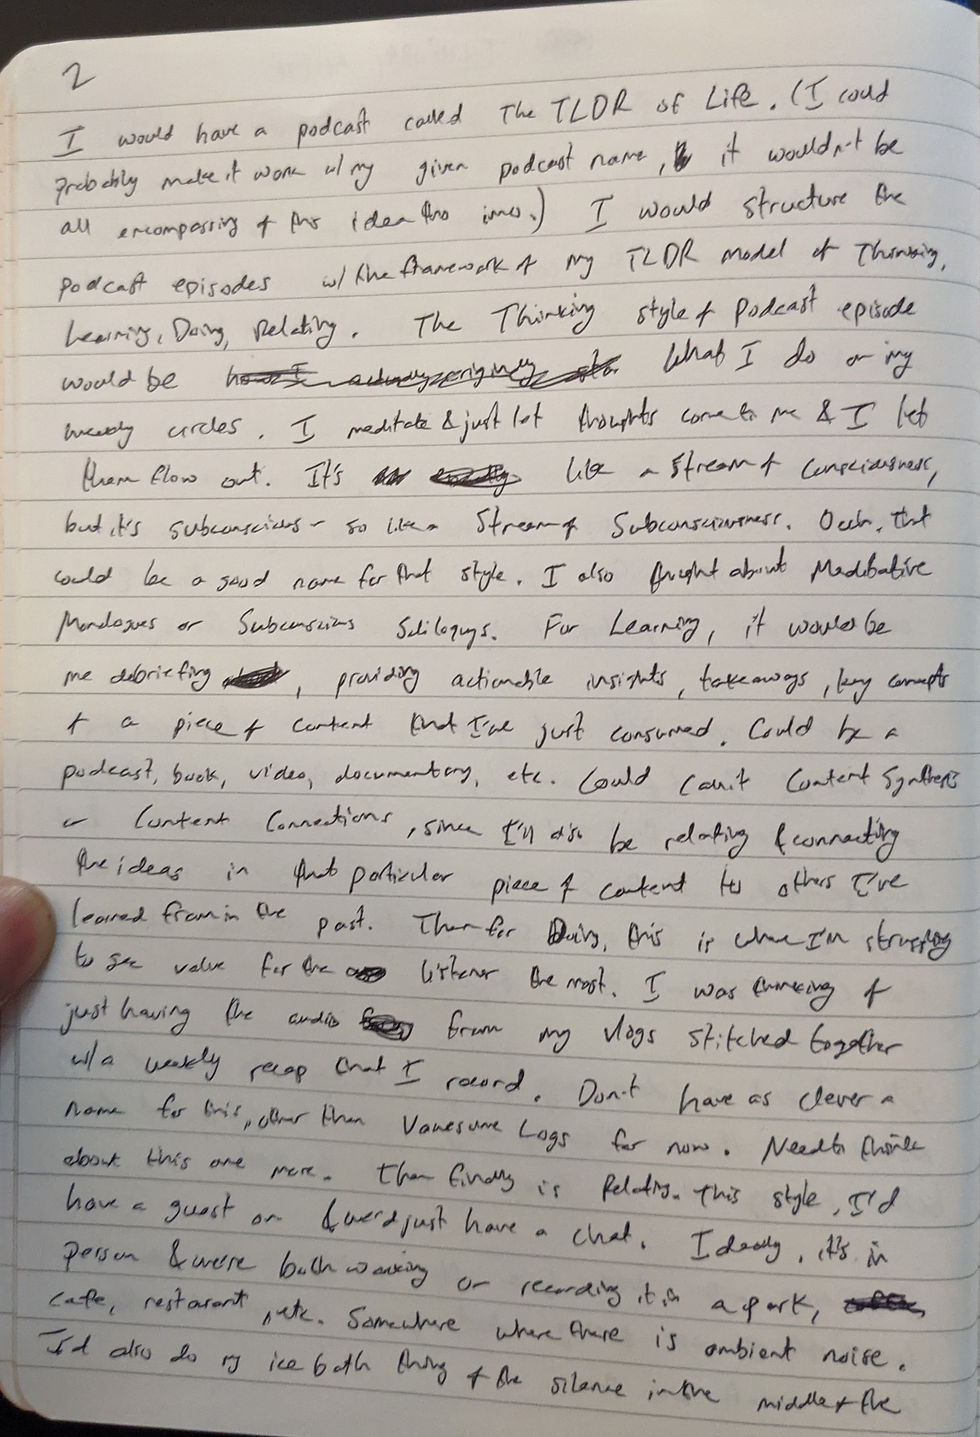 2
I would have a podcast called The TLDR of Life. (I could
probably make it work w/ my given podcast name, it wouldn't be
all encompassing of this idea tho imo.) I would structure the
podcast episodes w/ the framework of my TLDR model of Thinking,
Learning, Doing, Relating. The Thinking style of podcast episode
would be what I do on my
weekly circles. I meditate & just let thoughts come to me & I let
them flow out. It's like a stream of consciousness,
but it's subconscious - so like a Stream of Subconsciousness. Oooh, that
could be a good name for that style. I also thought about Meditative
Monologues or Subconscious Soliloquys. For Learning, it would be
me debriefing, providing actionable insights, takeaways, key concepts
of a piece of content that I've just consumed. Could be a
podcast, book, video, documentary, etc. Could call it Content Synthesis
or Content Connections, since I'll also be relating & connecting
the ideas in that particular piece of content to others I've
learned from in the past. Then for Doing, this is where I'm struggling
to see value for the listener the most. I was thinking of
just having the audio from my vlogs stitched together
w/ a weekly recap that I record. Don't have as clever a
name for this, other than Logs for now. Need to think
about this one more. Then finally is Relating. This style, I'd
have a guest on & we'd just have a chat. Ideally, it's in
person & we're both walking or recording it in a park,
cafe, restaurant, etc. Somewhere where there is ambient noise.
I'd also do my ice bath thing of the silence in the middle of the